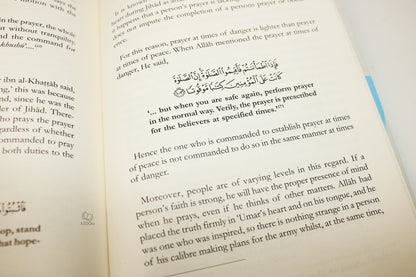 motion with
the prayer, the whole
without tranquility.
for without
khushū‘...’”
ibn al-Khaṭṭāb said,
ng,’ this was because
d, since he was the
der of Jihād. There-
who prays the prayer
egardless of whether
ommanded to pray
both duties to the
op, stand
that hope-
AZDOM
It is known
heart during Jihad as
happens that a person's prayer is
does not impair the completion of a persons prayer or
For this reason, prayer at times of danger is lighter than prayer
at times of peace. When Allāh mentioned the prayer at times of
danger, He said,
فَإِذَا ٱطْمَأْنَنتُمْ فَأَقِيمُوا۟ ٱلصَّلَوٰةَ إِنَّ ٱلصَّلَوٰةَ
كَانَتْ عَلَى ٱلْمُؤْمِنِينَ كِتَٰبًا مَّوْقُوتًا
‘... but when you are safe again, perform prayer
in the normal way. Verily, the prayer is prescribed
for the believers at specified times.”’
Hence the one who is commanded to establish prayer at times
of peace is not commanded to do so in the same manner at times
of danger.
Moreover, people are of varying levels in this regard. If a
person's faith is strong, he will have the proper presence of mind
when he prays, even if he thinks of other matters. Allāh had
placed the truth firmly in ‘Umar's heart and on his tongue, and he
was one who was inspired, so there is nothing strange in a person
of his calibre making plans for the army whilst, at the same time,